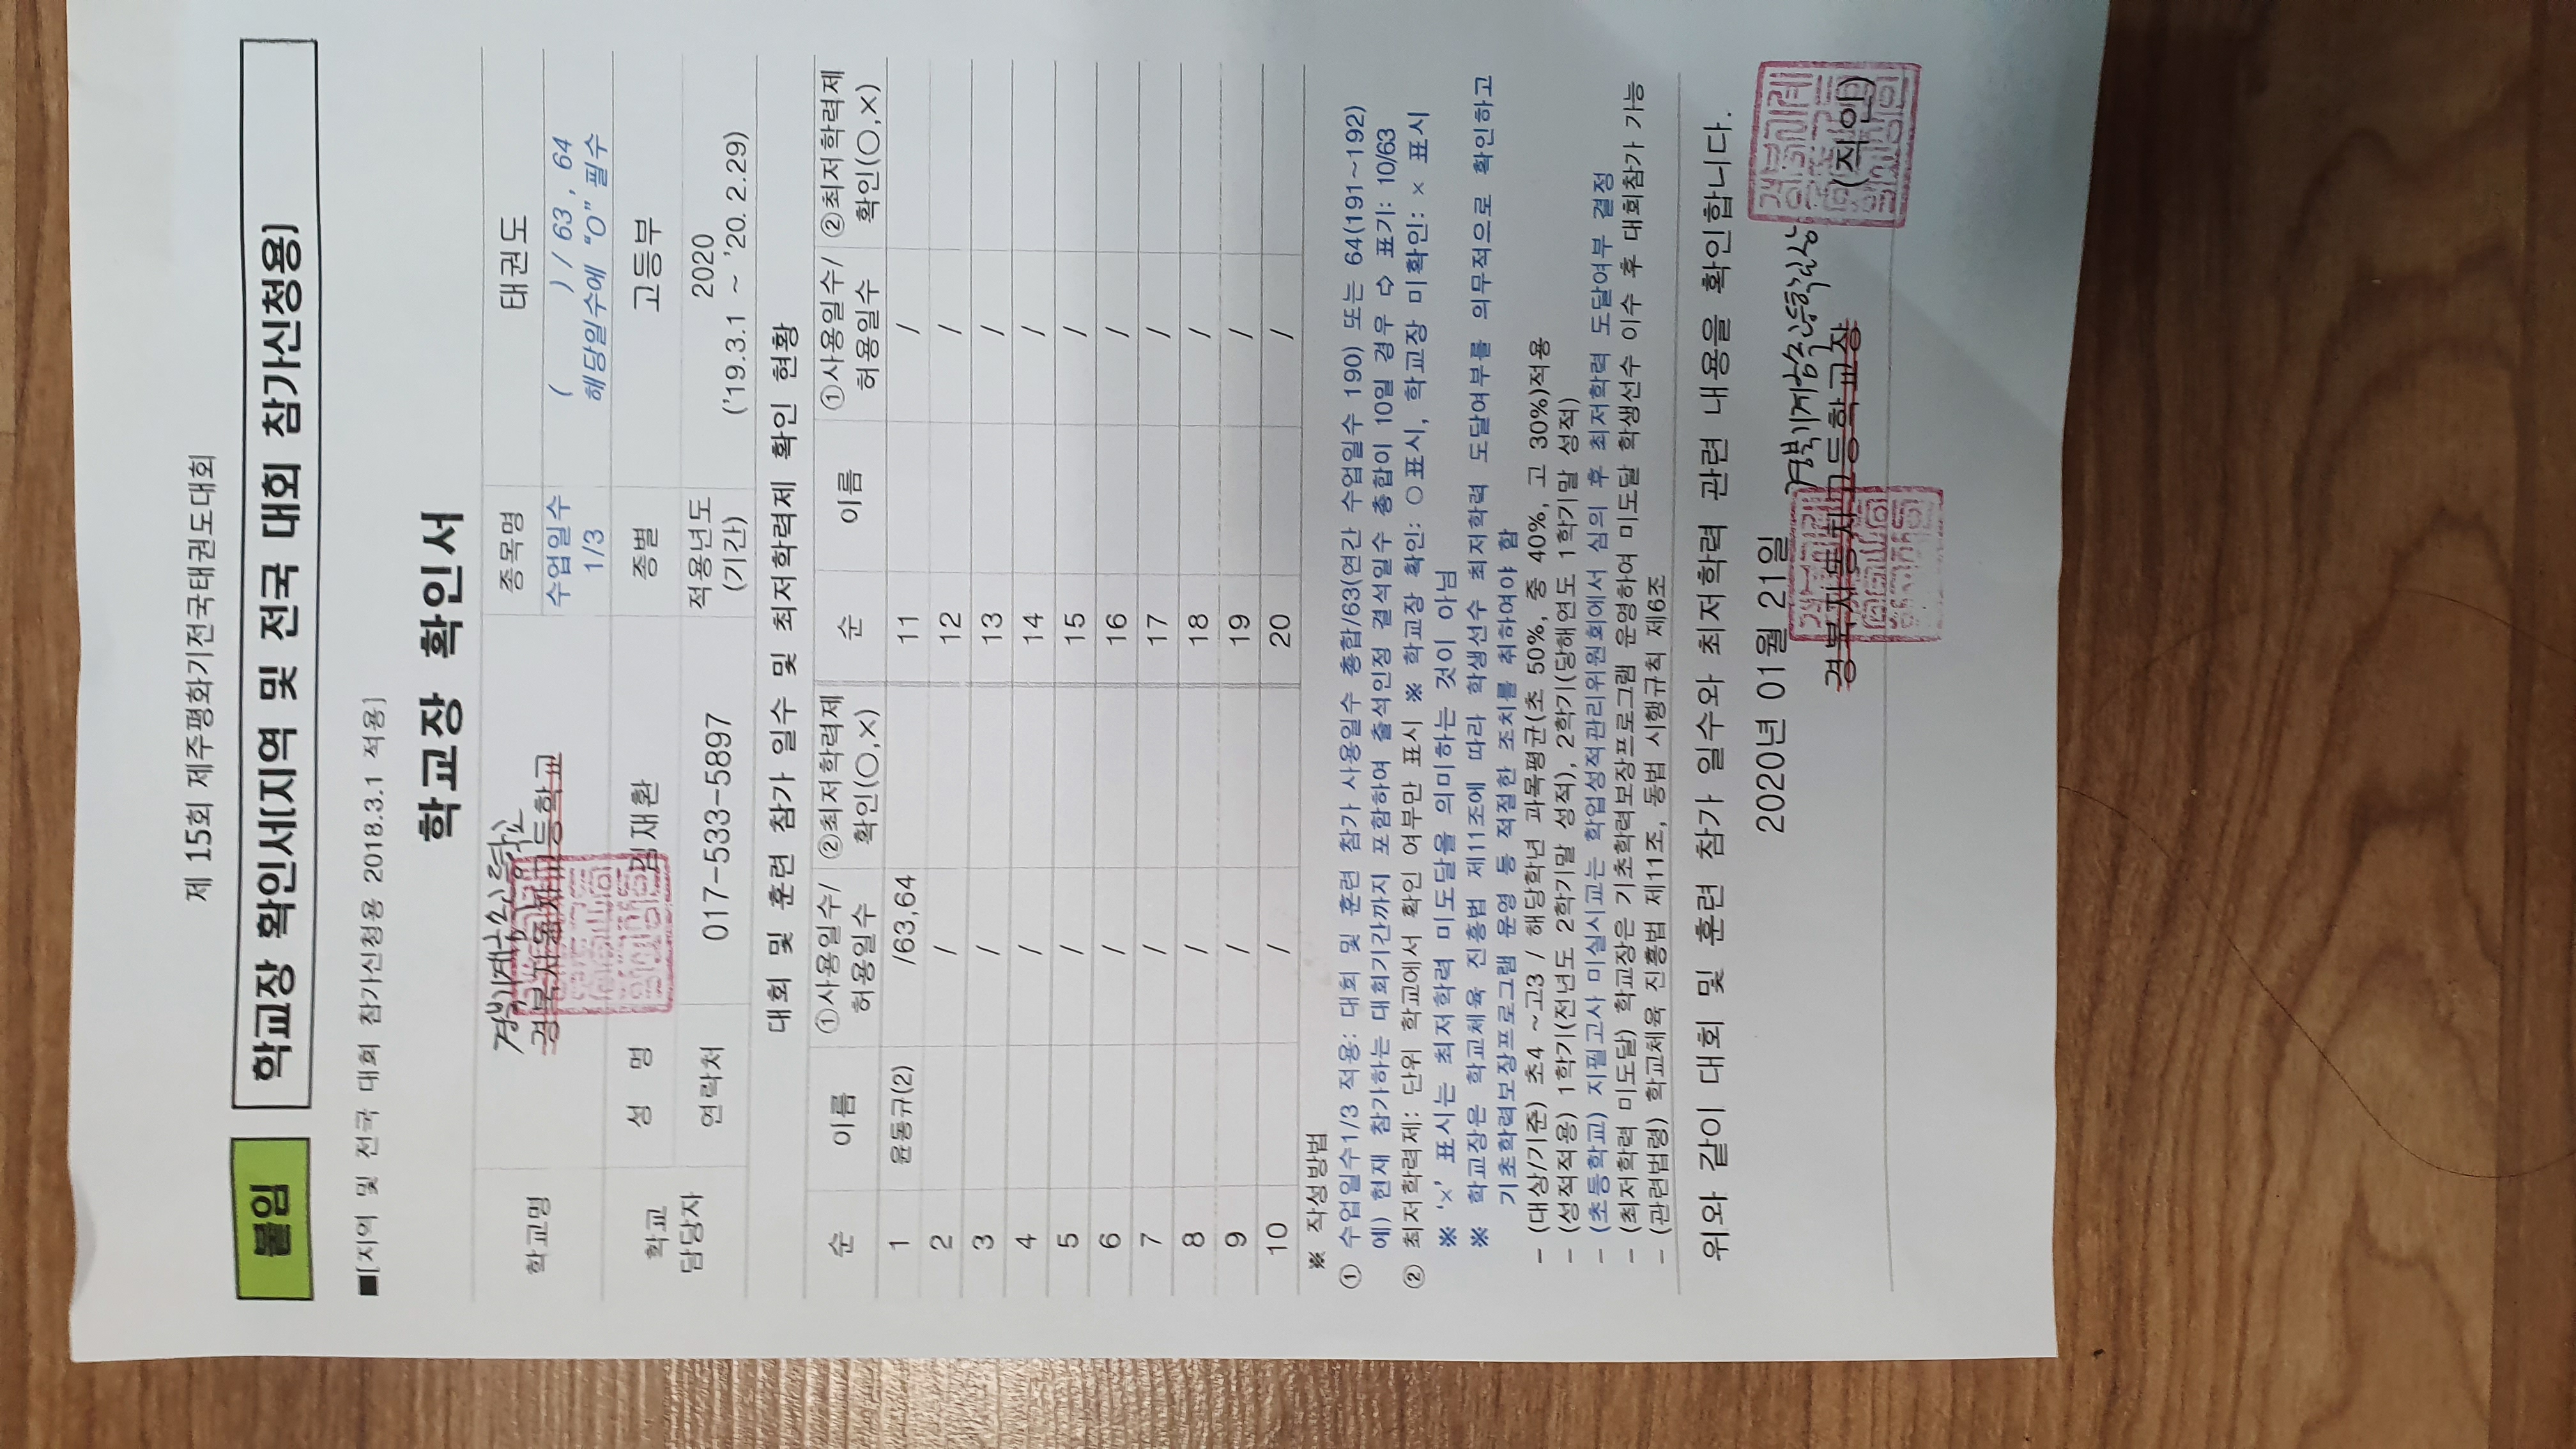 제 15회 제주평화기전국태권도대회
붙임 학교장 확인서(지역 및 전국 대회 참가신청용)
■[지역 및 전국 대회 참가신청용 2018.3.1 적용]
학교장 확인서
학교명 경북기계금속고등학교 종목명 태권도
경북자동차고등학교
수업일수 1/3 ( ) / 63, 64
해당일수에 "O" 필수
학교 담당자 성 명 재환 종별 고등부
연락처 017-533-5897 적용년도 (기간) 2020
('19.3.1 ~ '20.2.29)
대회 및 훈련 참가 일수 및 최저학력제 확인 현황
순 이름 ①사용일수/허용일수 ②최저학력제 확인(○,×) 순 이름 ①사용일수/허용일수 ②최저학력제 확인(○,×)
1 윤동규(2) /63,64 11 /
2 / 12 /
3 / 13 /
4 / 14 /
5 / 15 /
6 / 16 /
7 / 17 /
8 / 18 /
9 / 19 /
10 / 20 /
※ 작성방법
① 수업일수1/3 적용: 대회 및 훈련 참가 사용일수 총합/63(연간 수업일수 190) 또는 64(191~192)
예) 현재 참가하는 대회기간까지 포함하여 출석인정 결석일수 총합이 10일 경우 ⇨ 표기: 10/63
② 최저학력제: 단위 학교에서 확인 여부만 표시 ※ 학교장 확인: ○표시, 학교장 미확인: × 표시
※ '×' 표시는 최저학력 미도달을 의미하는 것이 아님
※ 학교장은 학교체육 진흥법 제11조에 따라 학생선수 최저학력 도달여부를 의무적으로 확인하고
기초학력보장프로그램 운영 등 적절한 조치를 취하여야 함
- (대상/기준) 초4 ~고3 / 해당학년 과목평균(초 50%, 중 40%, 고 30%)적용
- (성적적용) 1학기(전년도 2학기말 성적), 2학기(당해연도 1학기말 성적)
- (초등학교) 지필고사 미실시교는 학업성적관리위원회에서 심의 후 최저학력 도달여부 결정
- (최저학력 미도달) 학교장은 기초학력보장프로그램 운영하여 미도달 학생선수 이수 후 대회참가 가능
- (관련법령) 학교체육 진흥법 제11조, 동법 시행규칙 제6조
위와 같이 대회 및 훈련 참가 일수와 최저학력 관련 내용을 확인합니다.
2020년 01월 21일
경북기계금속고등학교장
경북자동차고등학교장 (직인)